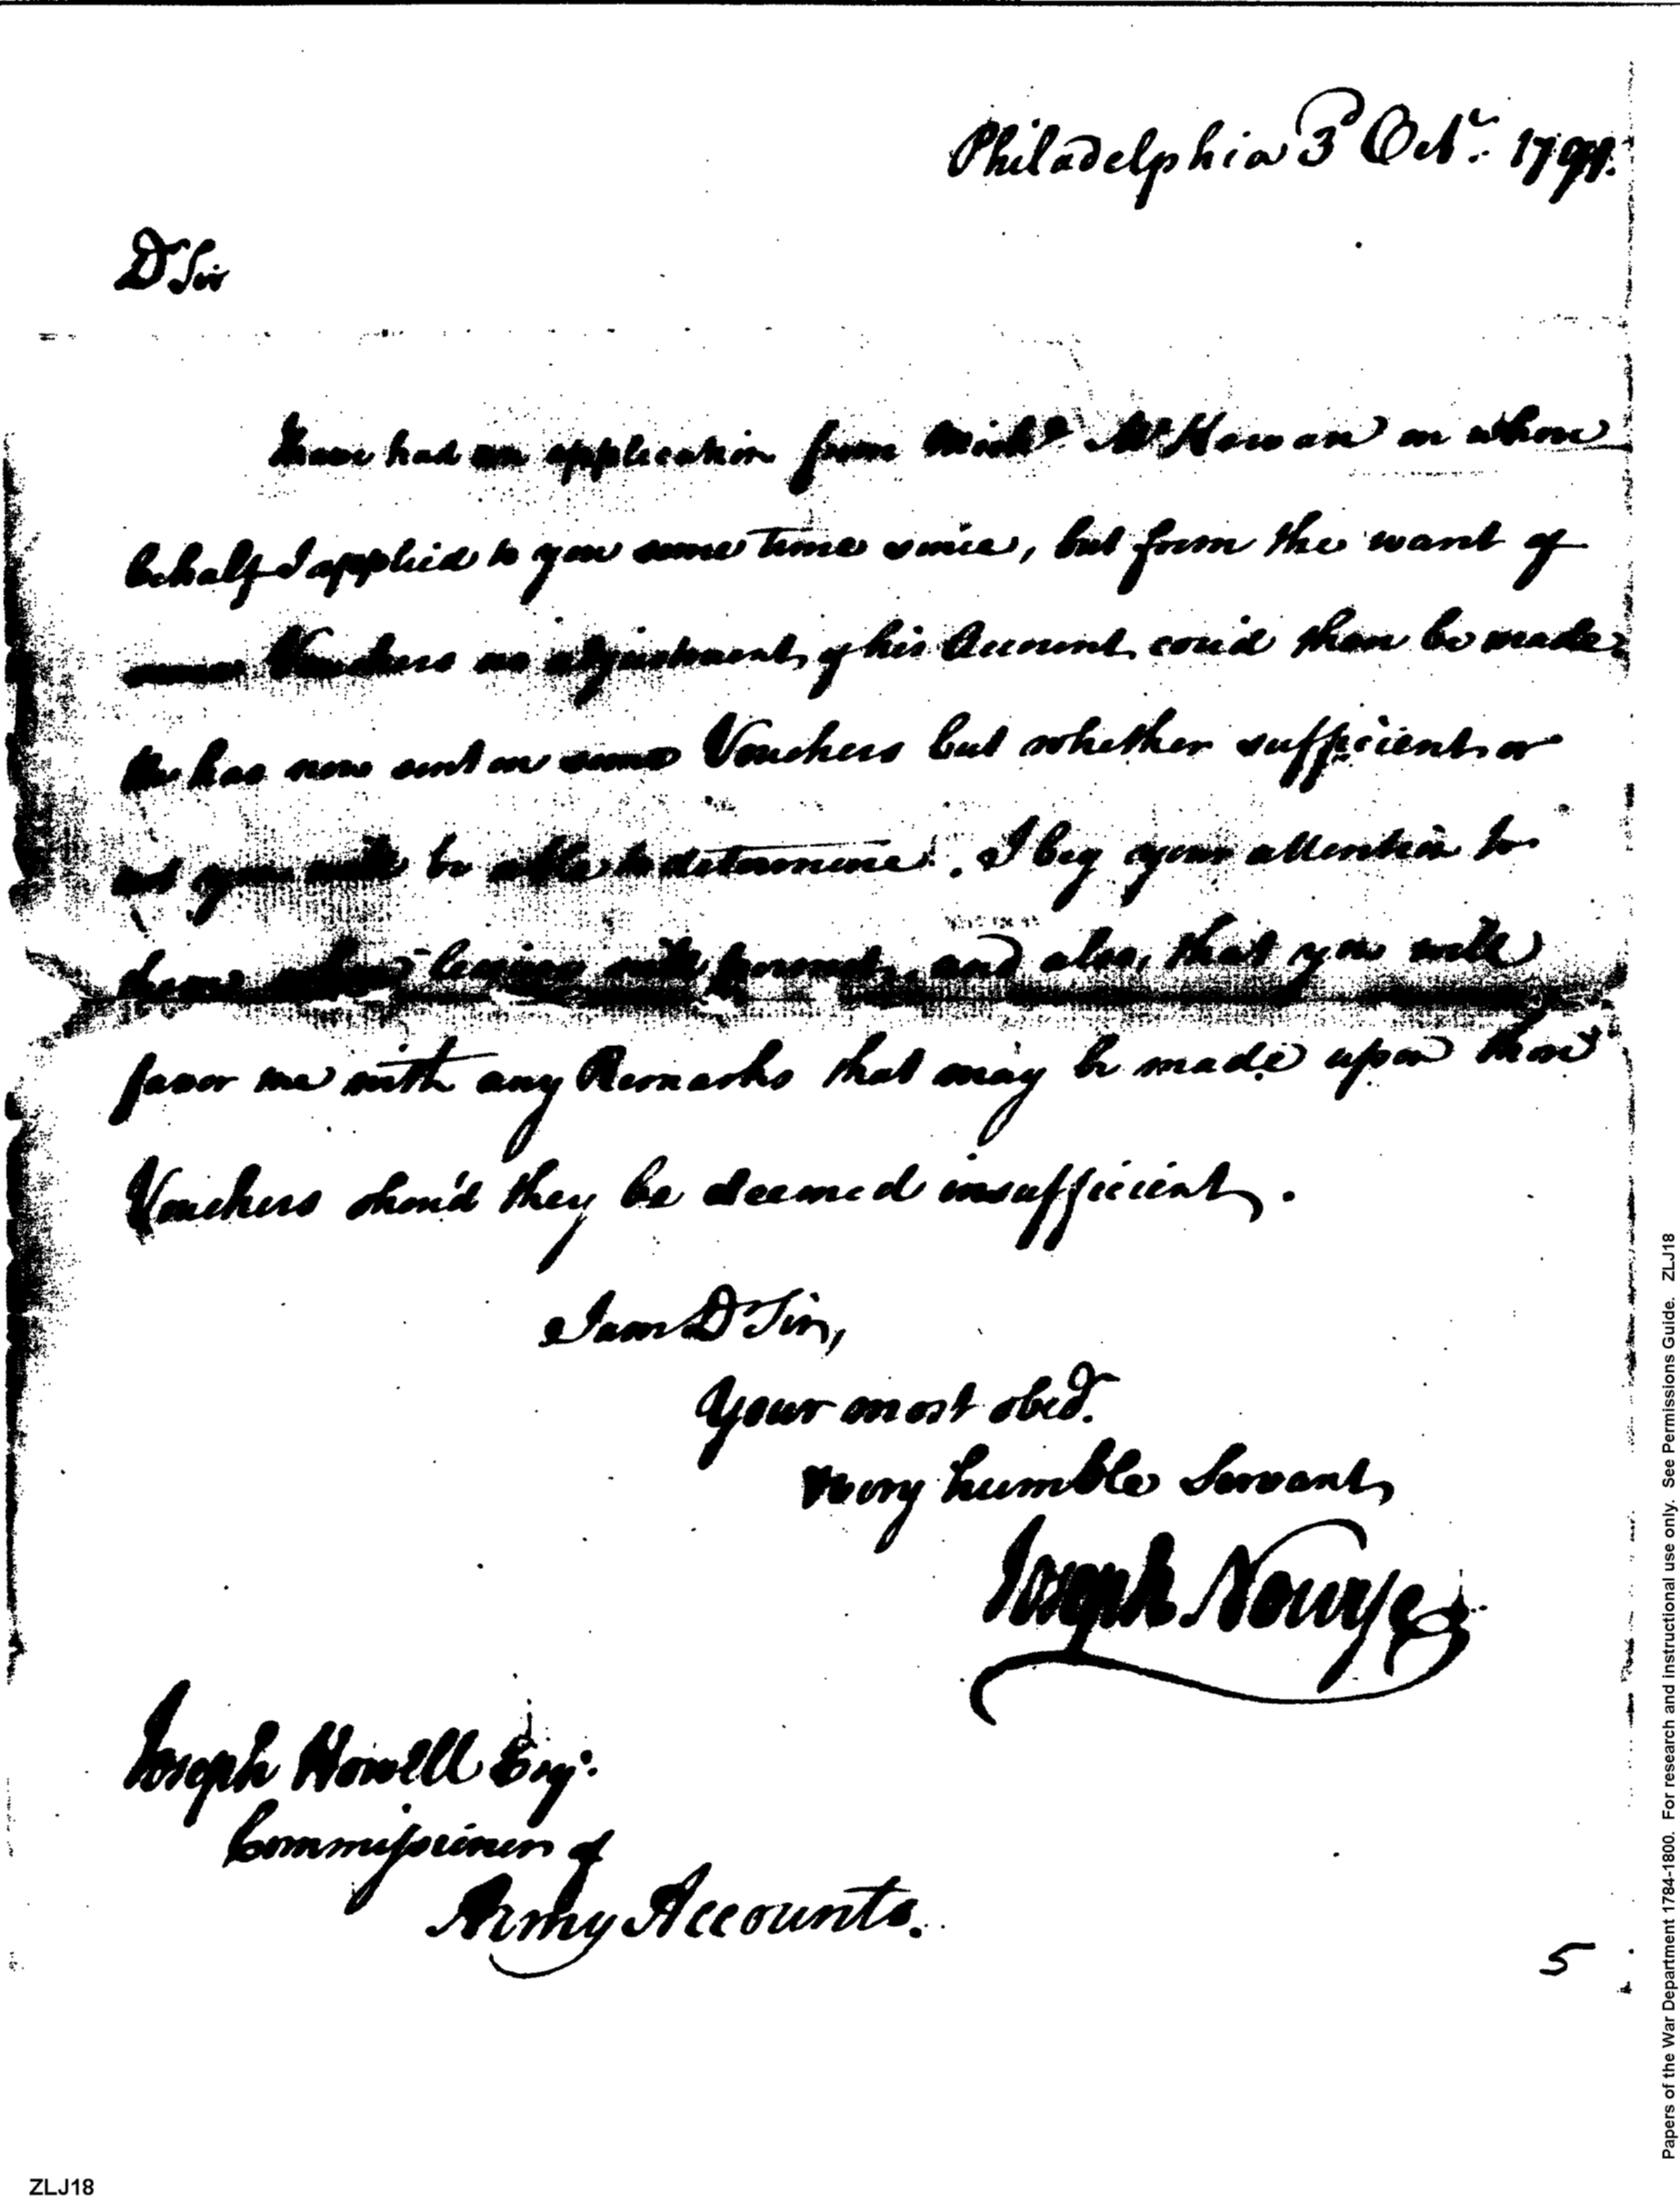 Philadelphia 3d Octr. 1791.
Dr Sir
I have had an application from Michl. McKewan on whose
behalf I applied to you some time since, but from the want of
some Vouchers no adjustment of his Account cou'd then be made
He has now sent on some Vouchers but whether sufficient or
not you will be able to determine. I beg your attention to
them when leisure will permit, and also, that you will
favor me with any Remarks that may be made upon them
Vouchers shou'd they be deemed insufficient.
I am Dr Sir,
Your most obed.
very humble Servant
Joseph Nourse
Joseph Howell Esqr.
Commissioner of
Army Accounts.
5
ZLJ18
Papers of the War Department 1784-1800. For research and instructional use only. See Permissions Guide. ZLJ18